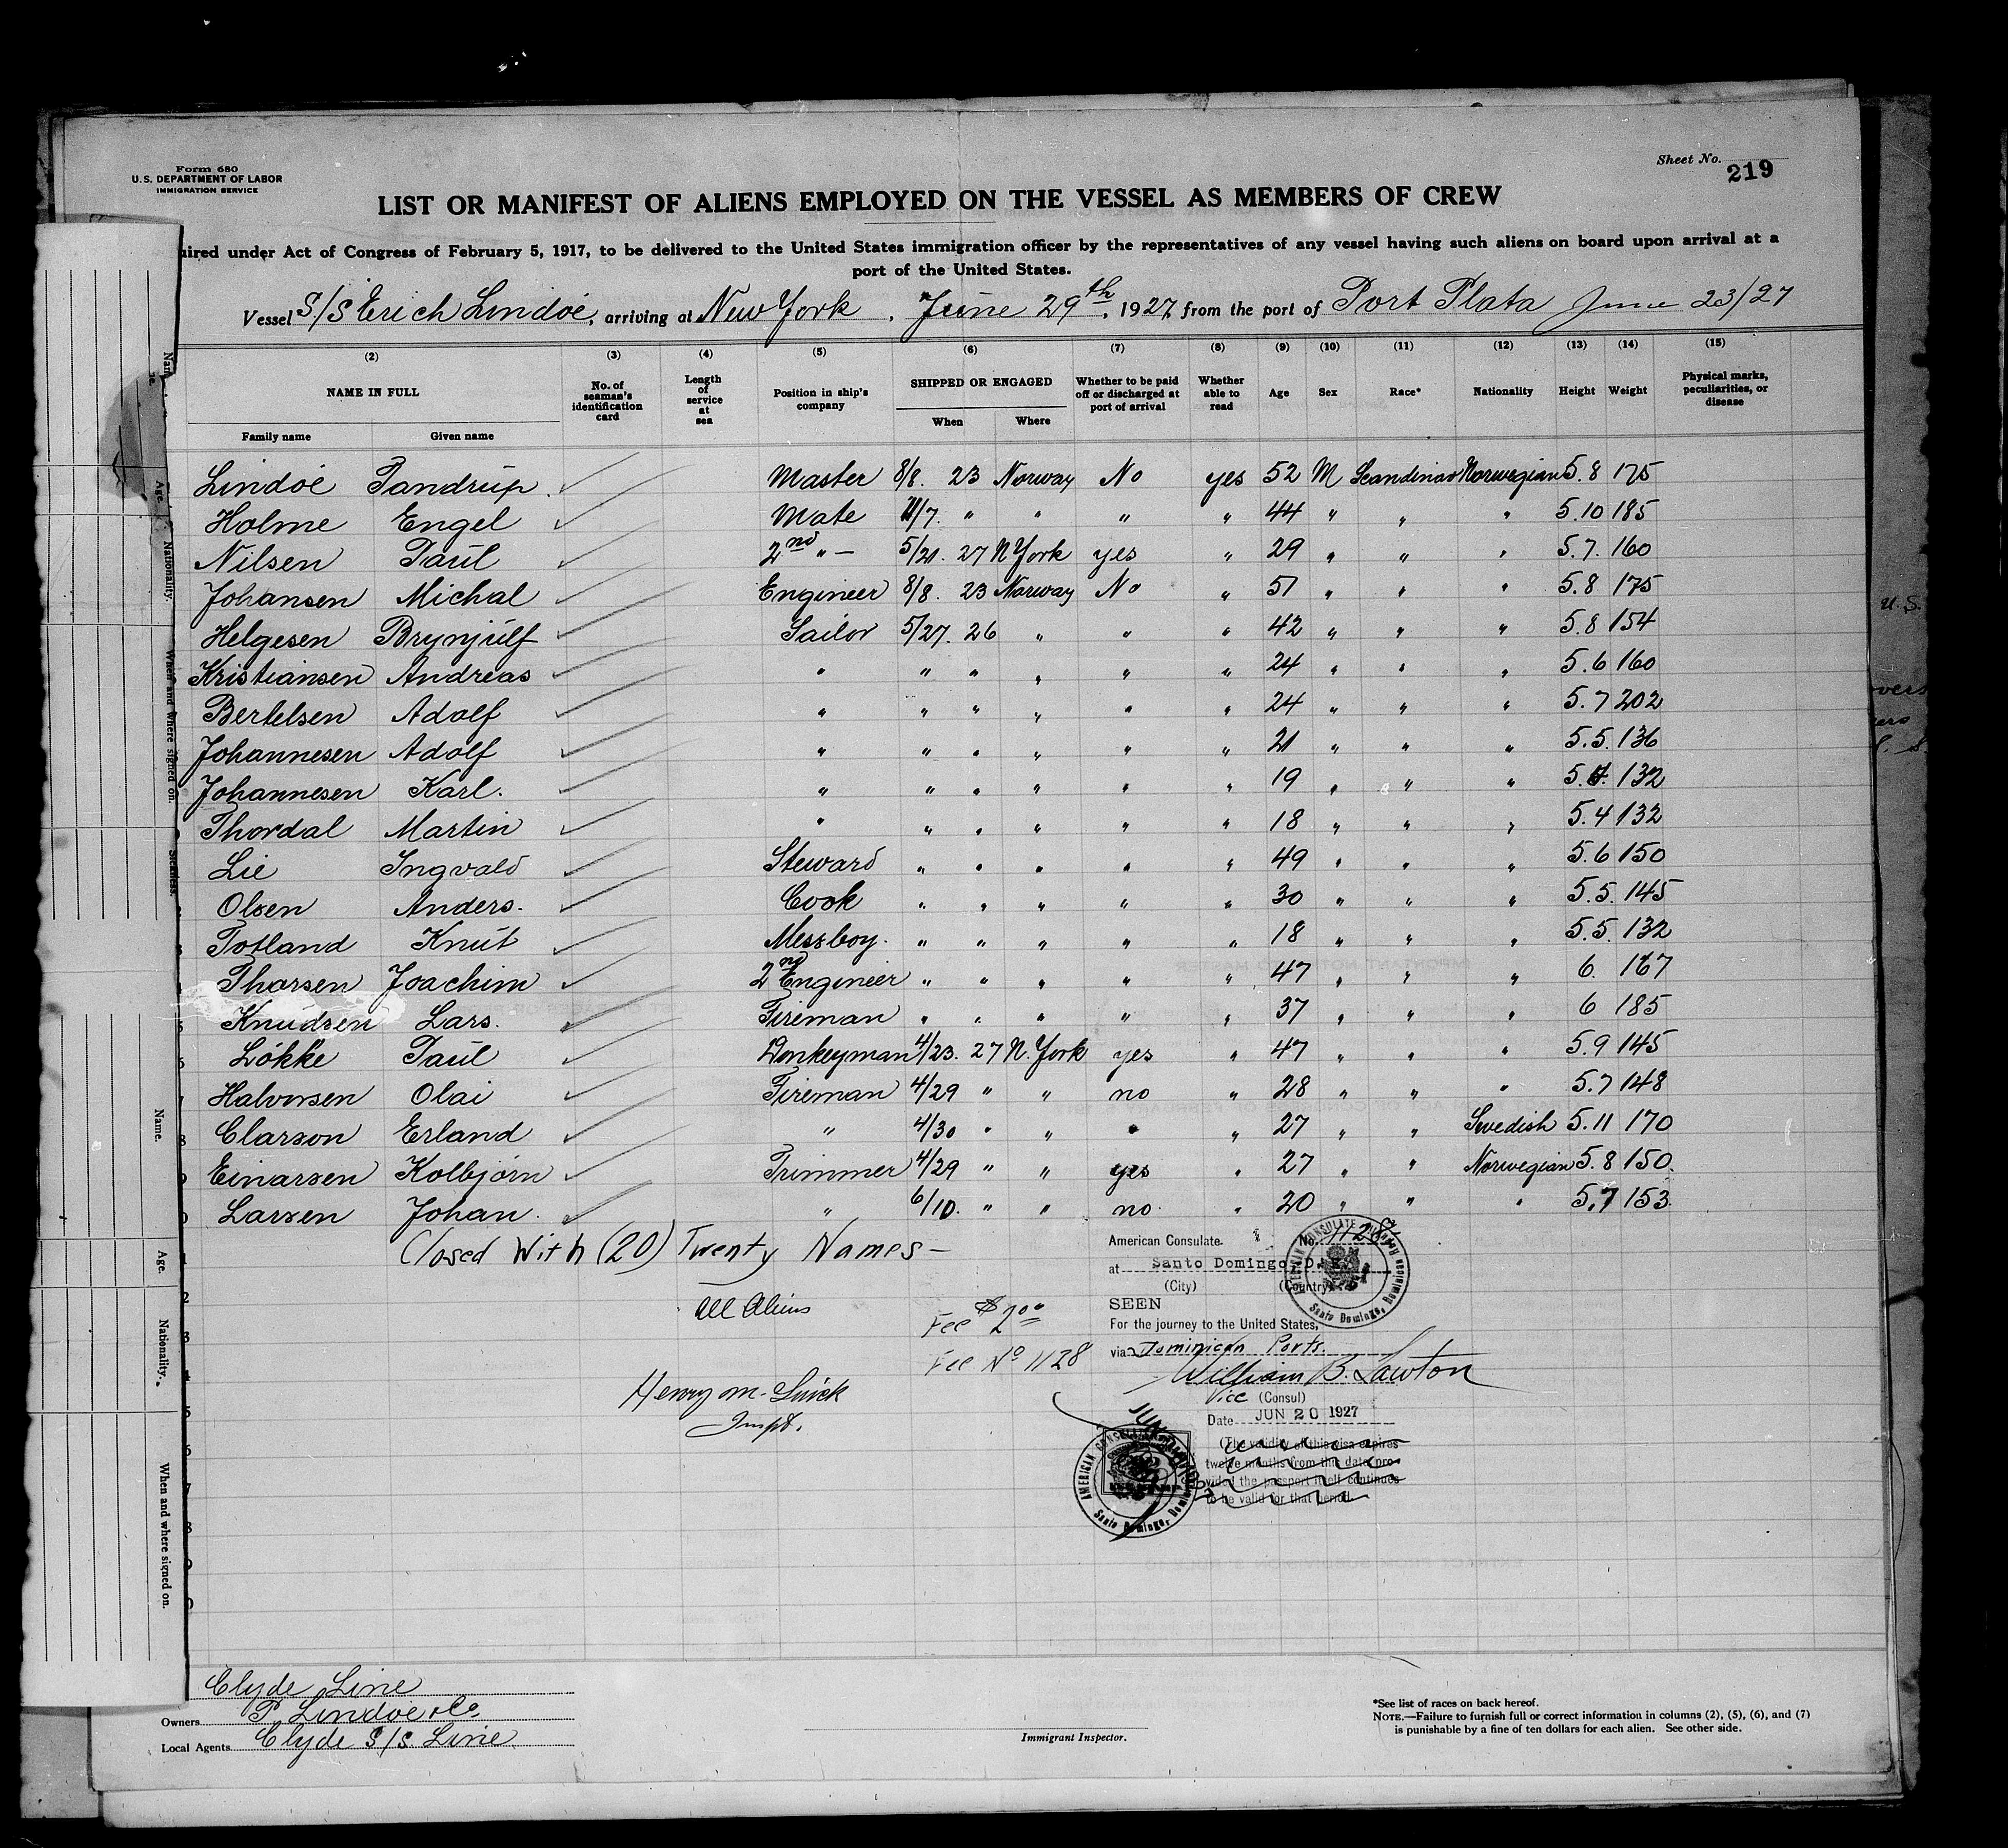 Form 680
U.S. DEPARTMENT OF LABOR
IMMIGRATION SERVICE
Sheet No. 219
LIST OR MANIFEST OF ALIENS EMPLOYED ON THE VESSEL AS MEMBERS OF CREW
uired under Act of Congress of February 5, 1917, to be delivered to the United States immigration officer by the representatives of any vessel having such aliens on board upon arrival at a
port of the United States.
Vessel S/S Erich Lindöe, arriving at New York, June 29th, 1927, from the port of Port Plata June 23/27
(2) (3) (4) (5) (6) (7) (8) (9) (10) (11) (12) (13) (14) (15)
NAME IN FULL No. of seaman's identification card Length of service at sea Position in ship's company SHIPPED OR ENGAGED Whether to be paid off or discharged at port of arrival Whether able to read Age Sex Race* Nationality Height Weight Physical marks, peculiarities, or disease
Family name Given name When Where
Lindöe Tandrup. Master 8/8. 23 Norway No yes 52 M Scandinav Norwegian 5.8 175
Holme Engel Mate 11/7. " " " " 44 " " " 5.10 185
Nilsen Paul 2nd " — 5/21. 27 N York yes " 29 " " " 5.7. 160
Johansen Michal Engineer 8/8. 23 Norway No " 51 " " " 5.8 175
Helgesen Brynjulf Sailor 5/27. 26 " " " 42 " " " 5.8 154
Kristiansen Andreas " " " " " " 24 " " " 5.6 160
Bertelsen Adolf " " " " " " 24 " " " 5.7 202
Johannesen Adolf " " " " " " 21 " " " 5.5. 136
Johannesen Karl. " " " " " " 19 " " " 5. 132
Thordal Martin " " " " " " 18 " " " 5.4 132
Lie Ingvald Steward " " " " " 49 " " " 5.6 150
Olsen Anders. Cook " " " " " 30 " " " 5.5. 145
Totland Knut Messboy. " " " " " 18 " " " 5.5. 132
Tharsen Joachim 2nd Engineer " " " " " 47 " " " 6. 167
Knudsen Lars. Fireman " " " " " 37 " " " 6 185
Lökke Paul Donkeyman 4/23. 27 N. York yes " 47 " " " 5.9 145
Halvorsen Olai Fireman 4/29 " " no " 28 " " " 5.7 148
Clarson Erland " 4/30 " " " " 27 " " Swedish 5.11 170
Einarsen Kolbjörn Trimmer 4/29 " " yes " 27 " " Norwegian 5.8 150.
Larsen Johan. " 6/10. " " no. " 20 " " " 5.7 153.
Closed With (20) Twenty Names —
All Aliens
Fee $2.00
Fee No 1128
Henry M.
Inspt.
American Consulate. No. 1128
at Santo Domingo, D. R.
(City) (Country)
SEEN
For the journey to the United States,
via Dominican Ports.
William B. Lawton
Vice (Consul)
Date JUN 20 1927
(The validity of this visa expires
twelve months from this date, pro-
vided the passport itself continues
to be valid for that period.
AMERICAN CONSULATE
Santo Domingo, Dominican Republic
AMERICAN CONSULATE
Santo Domingo, Dominican
Age.
Nationality.
When and where signed on.
Sickness.
Name.
Age.
Nationality.
When and where signed on.
U.S.
Clyde Line
Owners P Lindöe & Co
Local Agents Clyde S/S. Line.
Immigrant Inspector.
*See list of races on back hereof.
NOTE.—Failure to furnish full or correct information in columns (2), (5), (6), and (7)
is punishable by a fine of ten dollars for each alien. See other side.